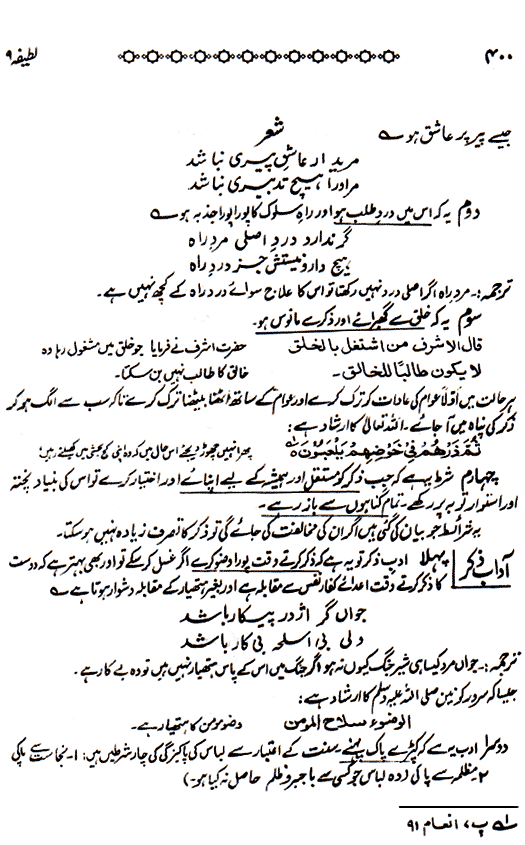 ۴۰۰ لطیفہ ۹
جیسے پیر پر عاشق ہو ے
شعر
مرید ار عاشقِ پیری نباشد
مر اورا ہیچ تدبیری نباشد
دوم یہ کہ اس میں دردِ طلب ہو اور راہِ سلوک کا پورا پورا جذبہ ہو ے
گر ندارد دردِ اصلی مردِ راہ
ہیچ دارو نیستش جز دردِ راہ
ترجمہ:۔ مردِ راہ اگر اصلی درد نہیں رکھتا تو اس کا علاج سوائے دردِ راہ کے کچھ نہیں ہے۔
سوم یہ کہ خلق سے گھبرائے اور ذکر سے مانوس ہو۔
قال الاشرف من اشتغل بالخلق حضرت اشرف نے فرمایا جو خلق میں مشغول رہا وہ
لا یکون طالبًا للخالق۔ خالق کا طالب نہیں بن سکتا۔
ہر حالت میں اوّلاً عوام کی عادات کو ترک کرے اور عوام کے ساتھ اٹھنا بیٹھنا ترک کرے تاکہ سب سے الگ ہو کر
ذکر کی پناہ میں آ جائے۔ اللہ تعالیٰ کا ارشاد ہے:
ثُمَّ ذَرْهُمْ فِي خَوْضِهِمْ يَلْعَبُوْنَ ۱ پھر انہیں چھوڑ دیجئے اس حال میں کہ وہ اپنی کج بحثی میں کھیلتے رہیں
چہارم شرط یہ ہے کہ جب ذکر کو مستقل اور ہمیشہ کے لیے اپنائے اور اختیار کرے تو اس کی بنیاد پختہ
اور استوار توبہ پر رکھے۔ تمام گناہوں سے باز رہے۔
یہ شرائط جو بیان کی گئی ہیں اگر ان کی مخالفت کی جائے گی تو ذکر کا تصرف زیادہ نہیں ہو سکتا۔
آدابِ ذکر پہلا ادب ذکر تو یہ ہے کہ ذکر کرتے وقت پورا وضو کرے اگر غسل کر سکے تو اور بھی بہتر ہے کہ دوست
کا ذکر کرتے وقت اعدائے کفارِ نفس سے مقابلہ ہے اور بغیر ہتھیار کے مقابلہ دشوار ہوتا ہے ے
جواں گر اژدر پیکار باشد
ولی بی اسلحہ بی کار باشد
ترجمہ:۔ جواں مرد کیسا ہی شیرِ جنگ کیوں نہ ہو اگر جنگ میں اس کے پاس ہتھیار نہیں ہیں تو وہ بے کار ہے۔
جیسا کہ سرورِ کونین صلی اللہ علیہ وسلم کا ارشاد ہے:
الوضوء سلاح المومن وضو مومن کا ہتھیار ہے۔
دوسرا ادب یہ ہے کہ کپڑے پاک پہنے۔ سنت کے اعتبار سے لباس کی پاکیزگی کی چار شرطیں ہیں: ۱۔ نجاست سے پاکی
۲ مظلمہ سے پاکی (وہ لباس جو کسی سے با جبر و ظلم حاصل نہ کیا ہو۔)
۱ پ ۷، انعام ۹۱